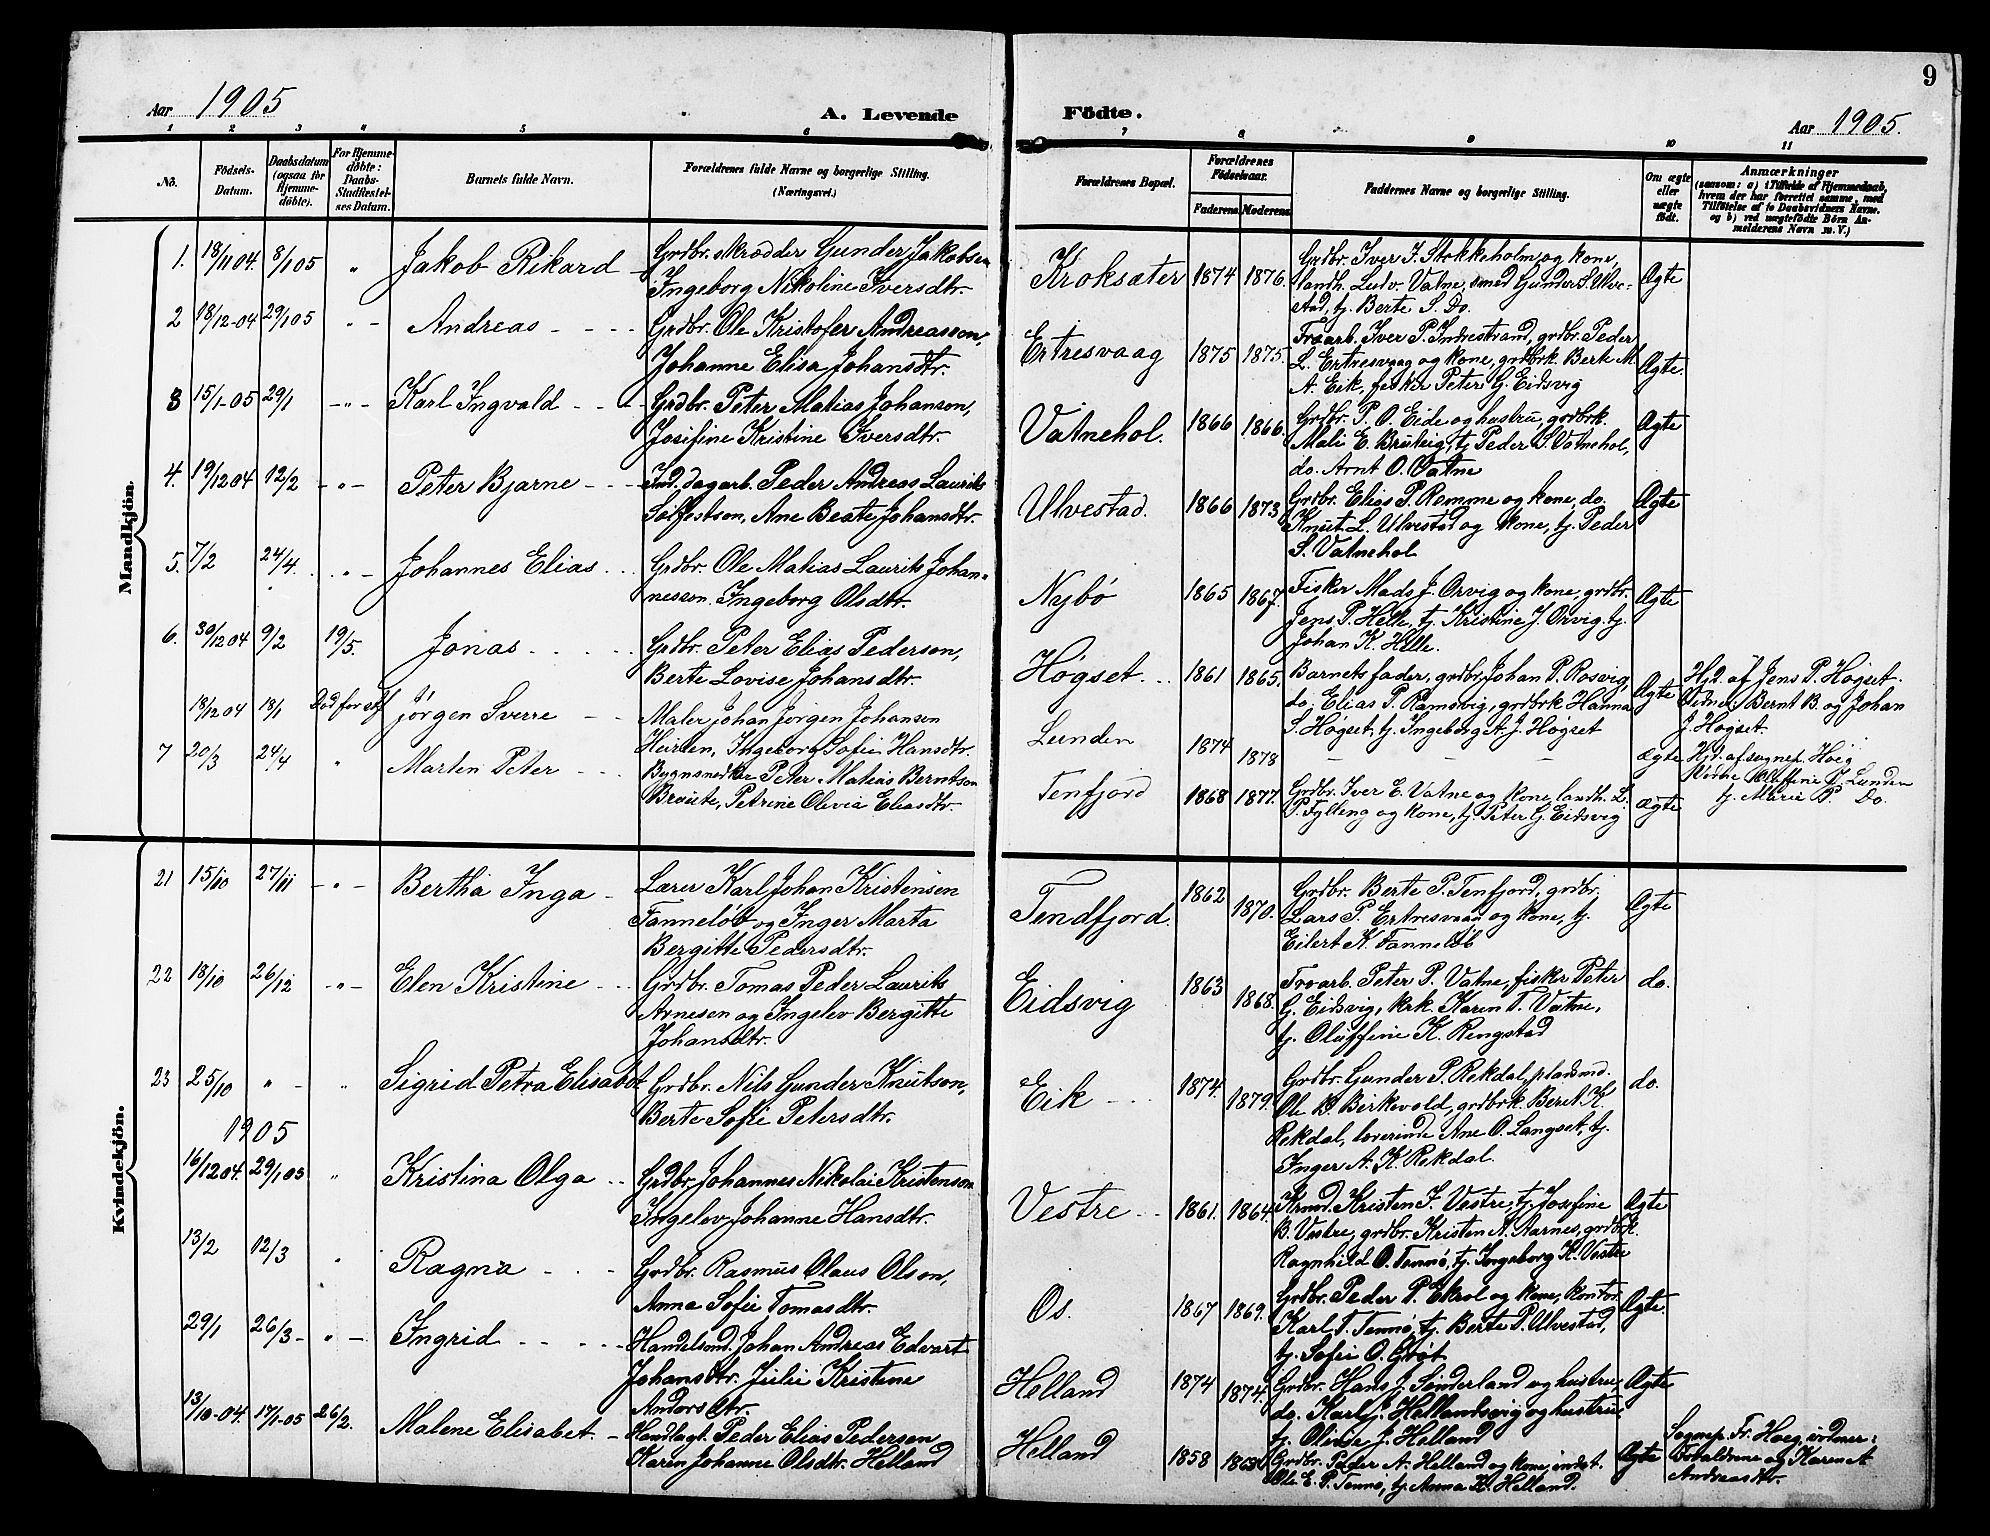 9
Aar 1905
A. Levende
Födte.
Aar 1905.
1 2 3 4 5 6 7 8 9 10 11
No.
Födsels-
Datum.
Daabsdatum
(ogsaa for
Hjemme-
döbte).
For Hjemme-
döbte:
Daabs-
Stadfæstel-
ses Datum.
Barnets fulde Navn.
Forældrenes fulde Navne og borgerlige Stilling.
(Næringsvei.)
Forældrenes Bopæl.
Forældrenes
Födselsaar.
Faderens. Moderens.
Faddernes Navne og borgerlige Stilling.
Om ægte
eller
uægte
födt.
Anmærkninger
(saasom: a) i Tilfælde af Hjemmedaab,
hvem der har forrettet samme, med
Tilföielse af to Daabsvidners Navne.
og b) ved uægtefödte Börn An-
melderens Navn m. V.)
Mandkjön.
1. 18/11 04 8/1 05 " Jakob Rikard
Grdbr. skrædder Gunder Jakobsen
Ingeborg Nikoline Iversdtr.
Kroksæter 1874 1876.
Grdbr. Iver J. Stokkeholm og kone,
landh. Ludv. Vatne, smed Gunder S. Ulve-
stad, tj. Berte S. Do.
Ægte
2 18/12-04 29/1 05 " Andreas
Grdbr. Ole Kristofer Andreasson,
Johanne Elisa Johansdtr.
Ertresvaag 1875 1875.
Iver P. Indrestrand, grdbr. Peder
L. Ertresvaag og kone, grdbrk. Berte M.
A. Eik, fisker Peter G. Eidsvig
Ægte.
3 15/1-05 29/1 " Karl Ingvald
Grdbr. Peter Matias Johanson,
Josefine Kristine Iversdtr.
Vatnehol. 1866 1866.
Grdbr. P. O. Eide og hustru, grdbrk.
Mali E. tj. Peder S. Vatnehol,
do. Arnt O. Vatne
Ægte
4. 19/12 04 12/2 " Peter Bjarne
Ind. dagarb. Peder Andreas Laurits
Ane Beate Johansdtr.
Ulvestad. 1866 1873
Grdbr. Elias P. Remme og kone, do.
Knut L. Ulvestad og kone, tj. Peder
S. Vatnehol
Ægte
5. 7/2 24/4. " Johannes Elias
Grdbr. Ole Matias Laurits Johan-
nesson. Ingeborg Olsdtr.
Nybø 1865 1867.
Fisker Mads J. Orvig og kone, grdbr.
Jens P. Helle, tj. Kristine J. Orvig, tj.
Johan K. Helle.
Ægte
6. 30/12 04 9/2 19/5. Jonas
Grdbr. Peter Elias Pederson,
Berte Lovise Johansdtr.
Høgset 1861 1865.
Barnets fader, grdbr. Johan P. Rosvig,
do. Elias P. Ramsvig, grdbrk Hanna
S. Høgset, tj. Ingeborg A. J. Høgset
Ægte
Hjd. af Jens P. Høgset.
Vidner: Bernt B. og Johan
J. Høgset.
18/12 04 18/1 Død før stf Jørgen Sverre
Maler Johan Jørgen Johansen
Ingeborg Sofie Hansdtr.
Lunden 1874 1878
ægte
Hjd. af sognep. Høeg
Vidne Oluffine J. Lunden
tj. Marie P. Do.
7 20/3 24/4 " Marten Peter
Bygnsnedker Peter Matias Berntson
Petrine Olivia Eliasdtr.
Tenfjord 1868 1877.
Grdbr. Iver E. Vatne og kone, landh. L.
P. Fylling og kone, tj. Peter G. Eidsvig
ægte
Kvindekjön.
21 15/10 27/11 " Bertha Inga
Lærer Karl Johan Kristensen
Tanneløb og Inger Marta
Bergitte Pedersdtr.
Tendfjord. 1862 1870.
Grdbr. Berte P. Tenfjord, grdbr.
Lars P. Ertresvaag og kone, tj.
Eilert K. Tanneløb
Ægte
22 18/10 26/12 " Elen Kristine
Grdbr. Tomas Peder Laurits
Arnesen og Ingelev Bergitte
Johansdtr.
Eidsvig 1863 1868.
Peter P. Vatne, fisker Peter
G. Eidsvig, Karen T. Vatne,
tj. Oluffine K. Ringstad
do.
23 25/10 " " Sigrid Petra Elisabet
Grdbr. Nils Gunder Knutson,
Berte Sofie Petersdtr.
Eik 1874. 1879.
Grdbr. Gunder P. Rekdal, pladsmd.
Ole B Birkevold, grdbrk. Berit K.
Rekdal, lærerinde Ane O. Langset, tj.
Inger A. K. Rekdal.
do.
1905
16/12 04. 29/1 05 " Kristina Olga
Grdbr. Johannes Nikolai Kristenson
Ingelev Johanne Hansdtr.
Vestre 1861. 1864
Kristen I. Vestre, tj. Josefine
B. Vestre, grdbr. Kristen A. Aarnes, grdbrk.
Ragnhild O. Tennø, tj. Ingeborg K. Vestre
Ægte
13/2 12/3 " Ragna
Grdbr. Rasmus Olaus Olson,
Anna Sofie Tomasdtr.
Os. 1867 1869.
Grdbr. Peder P. Ekrol og kone, kontor.
Karl T. Tennø, tj. Berte P. Ulvestad,
tj. Sofie O. Grøt
Ægte.
29/1 26/3 " Ingrid
Handelsmd. Johan Andreas Edvart
Johansdtr. Julie Kristine
Andorsdtr.
Helland 1874 1874.
Grdbr. Hans J. Sønderland og hustru,
do. Karl J. Hellandsvig og hustru
tj. Oline J. Helland
Ægte
13/10-04. 17/1-05 26/2. Malene Elisabet
Handlagt. Peder Elias Pedersen
Karen Johanne Olsdtr. Helland
Helland 1858 1863
Grdbr. Peder A. Helland og kone,
Ole E. P. Tennø, tj. Anna K. Helland.
Ægte
Sognep. Fr. Høeg, vidner:
Forældrene og Karen A
Andreasdtr.